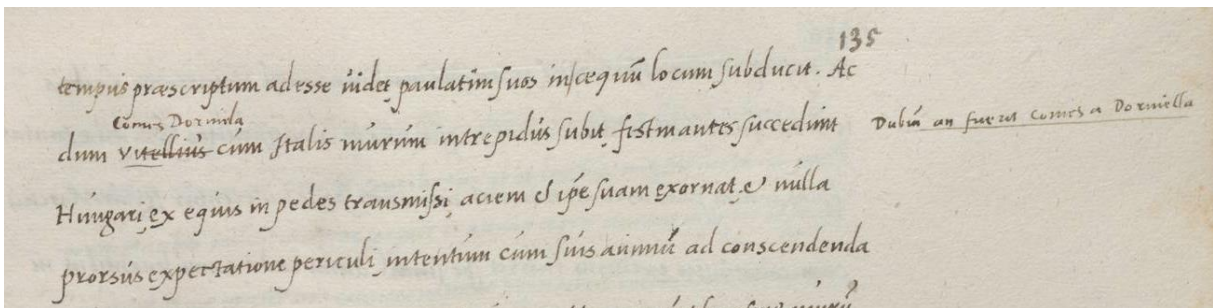 135
tempus præscriptum adesse uidet, paulatim suos in æquũ locum subducit. Ac
Comes Dormida
dum Vitellius cum Italis murum intrepidus subit, festinantes succedunt
Dubiũ an fuerit Comes a Dormella
Hungari, ex equis in pedes transmissi, aciem & ipẽ suam exornat, & nulla
prorsus expectatione periculi, intentum cum suis animũ ad conscendenda